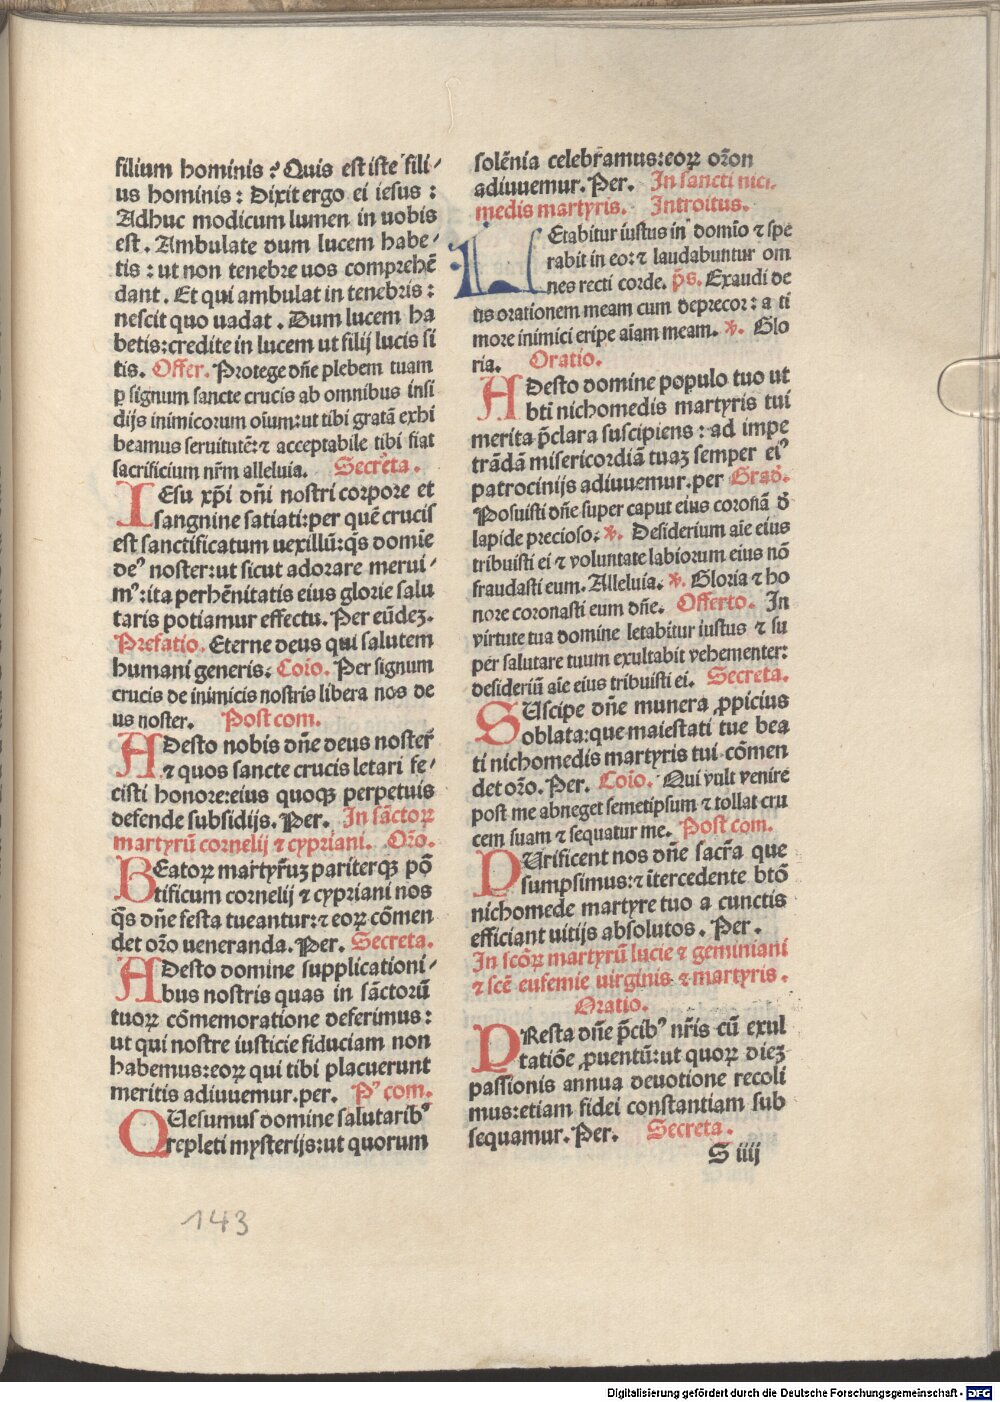 filium hominis? Quis est iste fili/
us hominis: Dixit ergo ei iesus:
Adhuc modicum lumen in uobis
est. Ambulate dum lucem habe/
tis: ut non tenebre uos comprehē
dant. Et qui ambulat in tenebris:
nescit quo uadat. Dum lucem ha
betis: credite in lucem ut filij lucis si
tis. Offer. Protege dñe plebem tuam
ꝑ signum sancte crucis ab omnibus insi
dijs inimicorum oīum: ut tibi gratā exhi
beamus seruitutē: ⁊ acceptabile tibi fiat
sacrificium nr̄m alleluia. Secreta.
IEsu xp̄i dñi nostri corpore et
sangnine satiati: per quē crucis
est sanctificatum uexillū: q̄s domīe
deꝰ noster: ut sicut adorare merui/
mꝰ: ita perhēnitatis eius glorie salu
taris potiamur effectu. Per eūdeꝫ.
Prefatio. Eterne deus qui salutem
humani generis. Coīo. Per signum
crucis de inimicis nostris libera nos de
us noster. Post com.
ADesto nobis dñe deus noster
⁊ quos sancte crucis letari fe/
cisti honore: eius quoqꝫ perpetuis
defende subsidijs. Per. In sāctoꝝ
martyrū cornelij ⁊ cypriani. Or̄o.
BEatoꝝ martyrūꝫ pariterqꝫ pō
tificum cornelij ⁊ cypriani nos
q̄s dñe festa tueantur: ⁊ eoꝝ cōmen
det or̄o ueneranda. Per. Secreta.
ADesto domine supplicationi/
bus nostris quas in sāctorū
tuoꝝ cōmemoratione deferimus:
ut qui nostre iusticie fiduciam non
habemus: eoꝝ qui tibi placuerunt
meritis adiuuemur. per. Pꝰ com.
QUesumus domine salutaribꝰ
repleti mysterijs: ut quorum
solēnia celebramus: eoꝝ or̄on
adiuuemur. Per. In sancti nici.
medis martyris. Introitus.
LEtabitur iustus in domīo ⁊ spe
rabit in eo: ⁊ laudabuntur om
nes recti corde. p̄s. Exaudi de
us orationem meam cum deprecor: a ti
more inimici eripe aīam meam. ℣. Glo
ria. Oratio.
ADesto domine populo tuo ut
btī nichomedis martyris tui
merita p̄clara suscipiens: ad impe
trādā misericordiā tuaꝫ semper eiꝰ
patrocinijs adiuuemur. per Grad̄.
Posuisti dñe super caput eius coronā d̄
lapide precioso. ℣. Desiderium aīe eius
tribuisti ei ⁊ voluntate labiorum eius nō
fraudasti eum. Alleluia. ℣. Gloria ⁊ ho
nore coronasti eum dñe. Offerto. In
virtute tua domine letabitur iustus ⁊ su
per salutare tuum exultabit vehementer:
desideriū aīe eius tribuisti ei. Secreta.
SUscipe dñe munera ꝓpicius
oblata: que maiestati tue bea
ti nichomedis martyris tui cōmen
det or̄o. Per. Coīo. Qui vult venire
post me abneget semetipsum ⁊ tollat cru
cem suam ⁊ sequatur me. Post com.
PUrificent nos dñe sacr̄a que
sumpsimus: ⁊ ītercedente btō
nichomede martyre tuo a cunctis
efficiant uitijs absolutos. Per.
In scōꝝ martyrū lucie ⁊ geminiani
⁊ scē eufemie uirginis ⁊ martyris.
Oratio.
PResta dñe p̄cibꝰ nr̄is cū exul
tatiōe ꝓuentū: ut quoꝝ dieꝫ
passionis annua deuotione recoli
mus: etiam fidei constantiam sub
sequamur. Per. Secreta.
S iiij
143
Digitalisierung gefördert durch die Deutsche Forschungsgemeinschaft - DFG